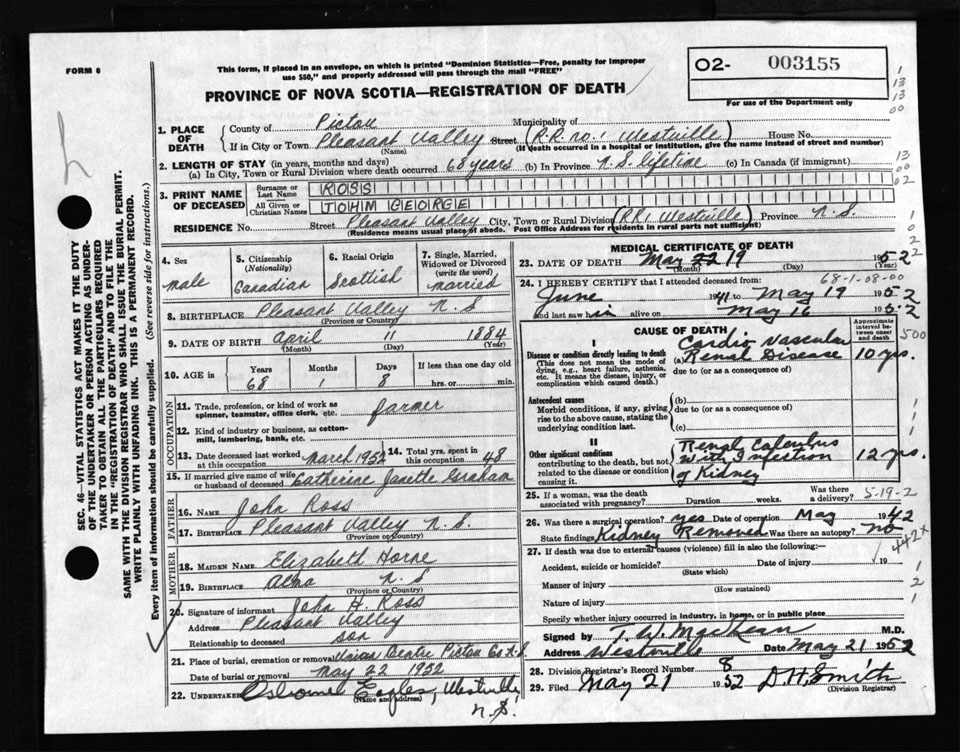 FORM 6
This form, if placed in an envelope, on which is printed "Dominion Statistics—Free, penalty for improper
use $50," and properly addressed will pass through the mail "FREE"
PROVINCE OF NOVA SCOTIA—REGISTRATION OF DEATH
02- 003155
For use of the Department only
1. PLACE OF DEATH
County of Pictou Municipality of
If in City or Town Pleasant Valley Street (R.R. no. 1 Westville) House No.
(Name) (If death occurred in a hospital or institution, give the name instead of street and number)
2. LENGTH OF STAY (in years, months and days)
(a) In City, Town or Rural Division where death occurred 68 years (b) In Province N.S. lifetime (c) In Canada (if immigrant)
3. PRINT NAME OF DECEASED
Surname or Last Name ROSS
All Given or Christian Names JOHM GEORGE
RESIDENCE No. Street Pleasant Valley City, Town or Rural Division (RR1 Westville) Province N.S.
(Residence means usual place of abode. Post Office Address for residents in rural parts not sufficient)
4. Sex male
5. Citizenship (Nationality) Canadian
6. Racial Origin Scottish
7. Single, Married, Widowed or Divorced (write the word) married
8. BIRTHPLACE Pleasant Valley N.S.
(Province or Country)
9. DATE OF BIRTH April 11 1884
(Month) (Day) (Year)
10. AGE in Years 68 Months 1 Days 8 If less than one day old hrs. or min.
OCCUPATION
11. Trade, profession, or kind of work as spinner, teamster, office clerk, etc. farmer
12. Kind of industry or business, as cotton-mill, lumbering, bank, etc.
13. Date deceased last worked at this occupation March 1952 14. Total yrs. spent in this occupation 48
15. If married give name of wife or husband of deceased Catherine Janette Graham
FATHER
16. NAME John Ross
17. BIRTHPLACE Pleasant Valley N.S.
(Province or Country)
MOTHER
18. MAIDEN NAME Elizabeth Horne
19. BIRTHPLACE Alma N S
(Province or Country)
20. Signature of informant John H. Ross
Address Pleasant Valley
Relationship to deceased son
21. Place of burial, cremation or removal Union Centre Pictou Co N.S.
Date of burial or removal May 22 1952
22. UNDERTAKER Eagles, Westville
(Name and address)
N.S.
MEDICAL CERTIFICATE OF DEATH
23. DATE OF DEATH May 19 1952
(Month) (Day)
68-1-08-00
24. I HEREBY CERTIFY that I attended deceased from:
June 1941 to May 19 1952
and last saw him alive on May 16 1952
CAUSE OF DEATH
Approximate interval between onset and death
I
Disease or condition directly leading to death
(This does not mean the mode of dying, e.g., heart failure, asthenia, etc. It means the disease, injury, or complication which caused death.)
(a) Cardio Vascular Renal Disease 10 yrs.
due to (or as a consequence of)
Antecedent causes
Morbid conditions, if any, giving rise to the above cause, stating the underlying condition last.
(b)
due to (or as a consequence of)
(c)
II
Other significant conditions
contributing to the death, but not related to the disease or condition causing it.
Renal Calculus with Infection of Kidney 12 yrs.
25. If a woman, was the death associated with pregnancy? Duration weeks. Was there a delivery? 5-19-2
26. Was there a surgical operation? yes Date of operation May 1942
State findings Kidney Removed Was there an autopsy? no
27. If death was due to external causes (violence) fill in also the following:—
Accident, suicide or homicide? Date of injury 19
(State which)
442x
Manner of injury
(How sustained)
Nature of injury
Specify whether injury occurred in industry, in home, or in public place
Signed by M.D.
Address Westville Date May 21 1952
28. Division Registrar's Record Number 8
29. Filed May 21 1952 D.H. Smith
(Division Registrar)
SEC. 46—VITAL STATISTICS ACT MAKES IT THE DUTY
OF THE UNDERTAKER OR PERSON ACTING AS UNDER-
TAKER TO OBTAIN ALL THE PARTICULARS REQUIRED
IN THE "REGISTRATION OF DEATH" AND TO FILE THE
SAME WITH THE DIVISION REGISTRAR WHO SHALL ISSUE THE BURIAL PERMIT.
WRITE PLAINLY WITH UNFADING INK. THIS IS A PERMANENT RECORD.
Every item of information should be carefully supplied. (See reverse side for instructions.)